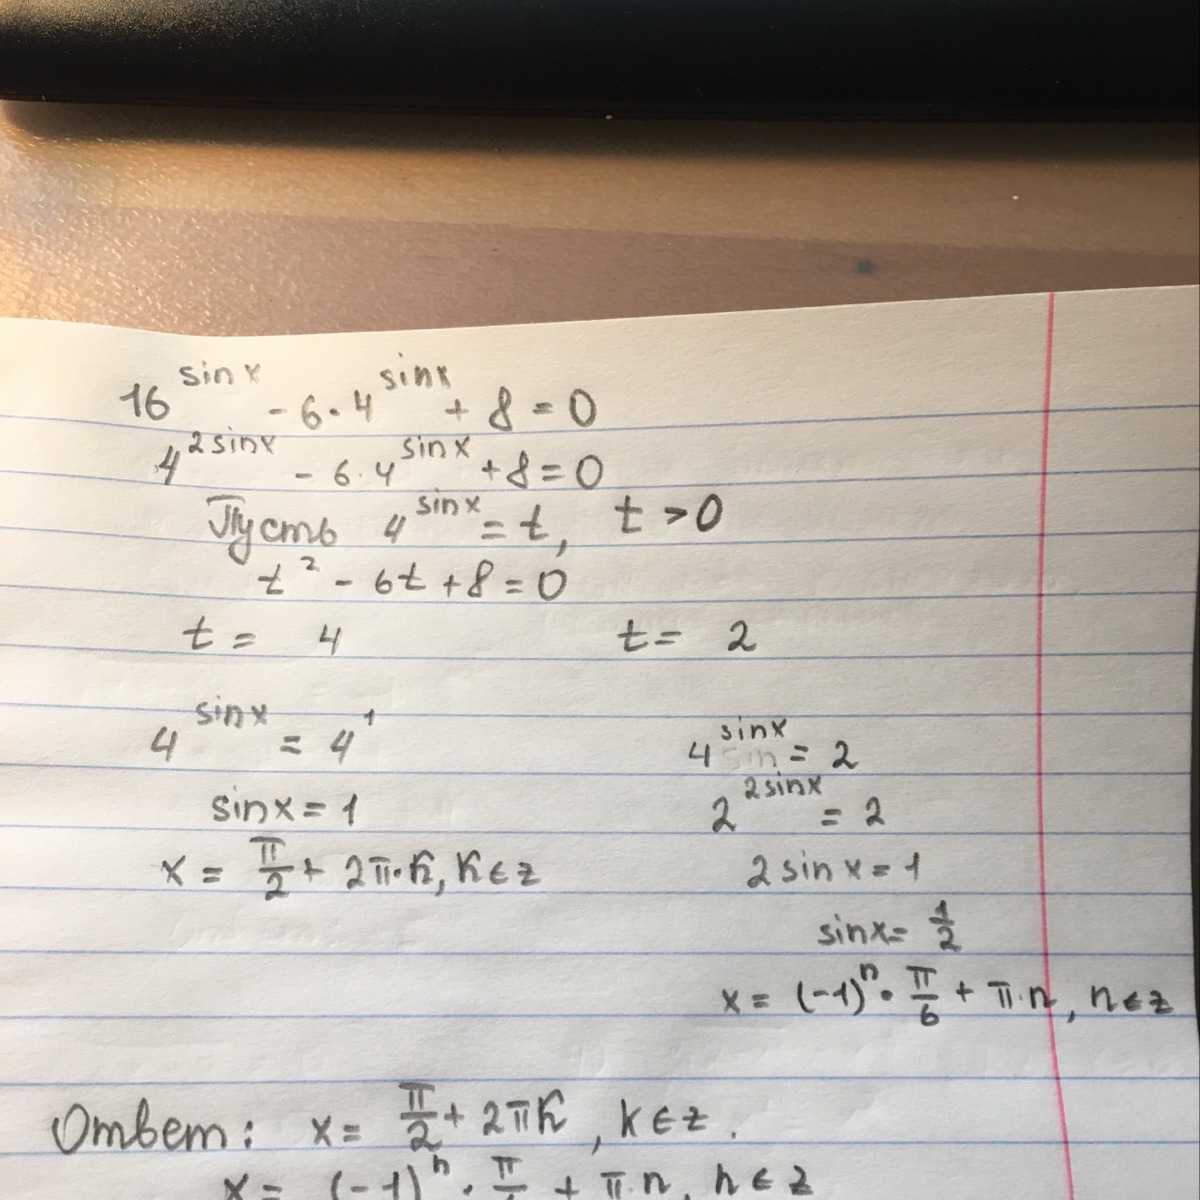 16^sin x - 6·4^sin x + 8 = 0
4^2 sin x - 6·4^sin x + 8 = 0
Пусть 4^sin x = t, t > 0
t² - 6t + 8 = 0
t = 4 t = 2
4^sin x = 4^1
4^sin x = 2
sin x = 1
2^2 sin x = 2
x = π/2 + 2π·k, k ∈ z
2 sin x = 1
sin x = 1/2
x = (-1)^n · π/6 + π·n, n ∈ z
Ответ: x = π/2 + 2πk, k ∈ z.
x = (-1)^n · π/ + π·n, n ∈ z